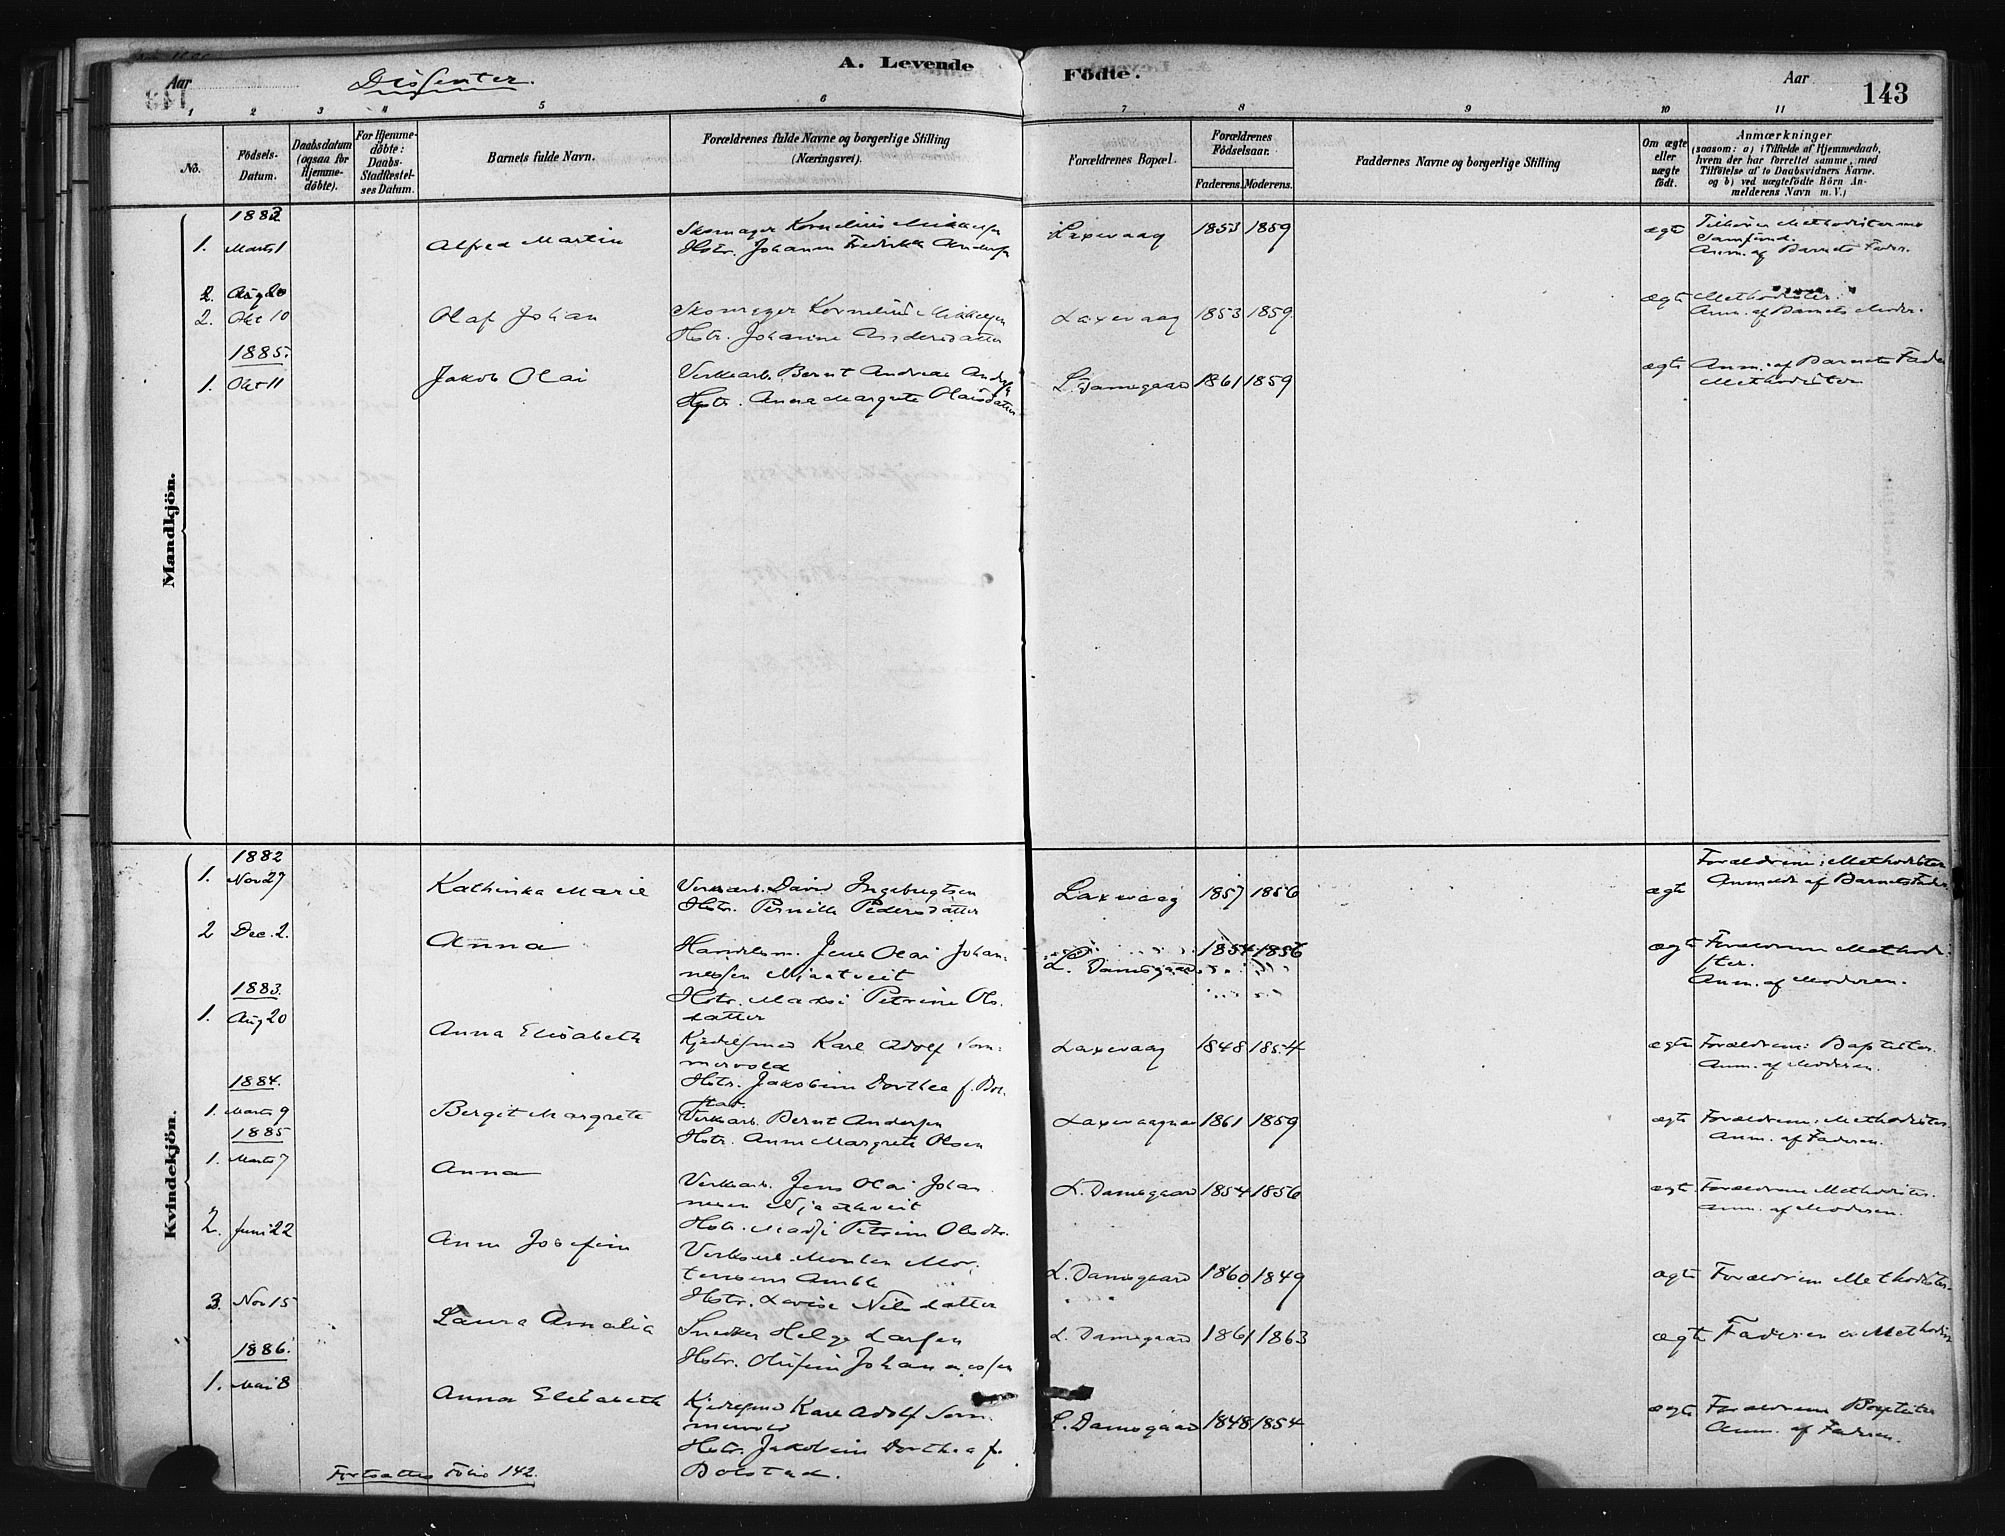 Dissenter.
A. Levende Födte.
Aar
Aar
143
1 2 3 4 5 6 7 8 9 10 11
No.
Födsels-Datum.
Daabsdatum (ogsaa for Hjemme-döbte).
For Hjemme-döbte: Daabs-Stadfæstel-ses Datum.
Barnets fulde Navn.
Forældrenes fulde Navne og borgerlige Stilling (Næringsvei).
Forældrenes Bopæl.
Forældrenes Födselsaar.
Faderens. Moderens.
Faddernes Navne og borgerlige Stilling
Om ægte eller uægte födt.
Anmærkninger
(saasom: a) i Tilfælde af Hjemmedaab,
hvem der har forrettet samme, med
Tilföielse af to Daabsvidners Navne.
og b) ved uægtefödte Börn An-
melderens Navn m. V.)
Mandkjön.
1. Marts 1 Alfred Martin Skomager Kornelius Mikkelsen Laxevaag 1853 1859 ægte Tilhører Methodisternes
Hstr. Johanne Fredrikke Andersen Samfund.
Anm. af Barnets Fader.
2. Aug 20
2. Okt 10 Olaf Johan Skomager Kornelius Mikkelsen Laxevaag 1853 1859. ægte Methodister.
Hstr. Johanne Andersdatter Anm. af Barnets Moder.
1885.
1. Okt 11 Jakob Olai Verksarb. Bernt Andreas Andersen L. Damsgaard 1861 1859 ægte Anm. af Barnets Fader
Hstr. Anna Margrete Olaisdatter Methodister
Kvindekjön.
1882
1. Nov 27 Kathinka Marie Verksarb. David Ingebrigtsen Laxevaag 1857 1856 ægte Forældrene: Methodister
Hstr. Pernille Pedersdatter Anmeldt af Barnets Fader
2 Dec. 2. Anna Handelsm. Jens Olai Johan- L. Damsgaard 1854 1856 ægte Forældrene Methodi-
nessen Mjaatveit ster.
Hstr. Madsi Petrine Ols- Anm. af Moderen.
datter
1883.
1. Aug 20 Anna Elisabeth Kjedelsmed Karl Adolf Som- Laxevaag 1848 1854 ægte Forældrene: Baptister.
mervold Anm. af Moderen.
Hstr. Jakobine Dorthea f. Bol-
stad
1884.
1. Marts 9 Bergit Margrete Verksarb. Bernt Andersen Laxevaagnæs 1861 1859 ægte Forældrene: Methodister.
Hstr. Anne Margrete Olsen Anm. af Faderen.
1885
1. Marts 7 Anna Verksarb. Jens Olai Johan- L. Damsgaard 1854 1856 ægt. Forældrene Methodister.
nesen Mjaatveit Anm. af Moderen.
Hstr. Madsi Petrine Olsdtr.
2. Juni 22 Anne Josefine Verksarb. Morten Mor- L. Damsgaard 1860 1849 ægte Forældrene Methodister.
tensen Amble
Hstr. Lovise Nilsdatter
3. Nov 15 Laura Amalia Snedker Helge Larsen L. Damsgaard 1861 1863 ægte Faderen er Methodist
Hstr. Olufine Johannessen
1886.
1. Mai 8 Anna Elisabeth Kjedelsmed Karl Adolf Som- L. Damsgaard 1848 1854 ægte Forældrene Baptister
mervold Anm. af Faderen.
Hstr. Jakobine Dorthea f.
Bolstad.
Fortsættes Folio 142.